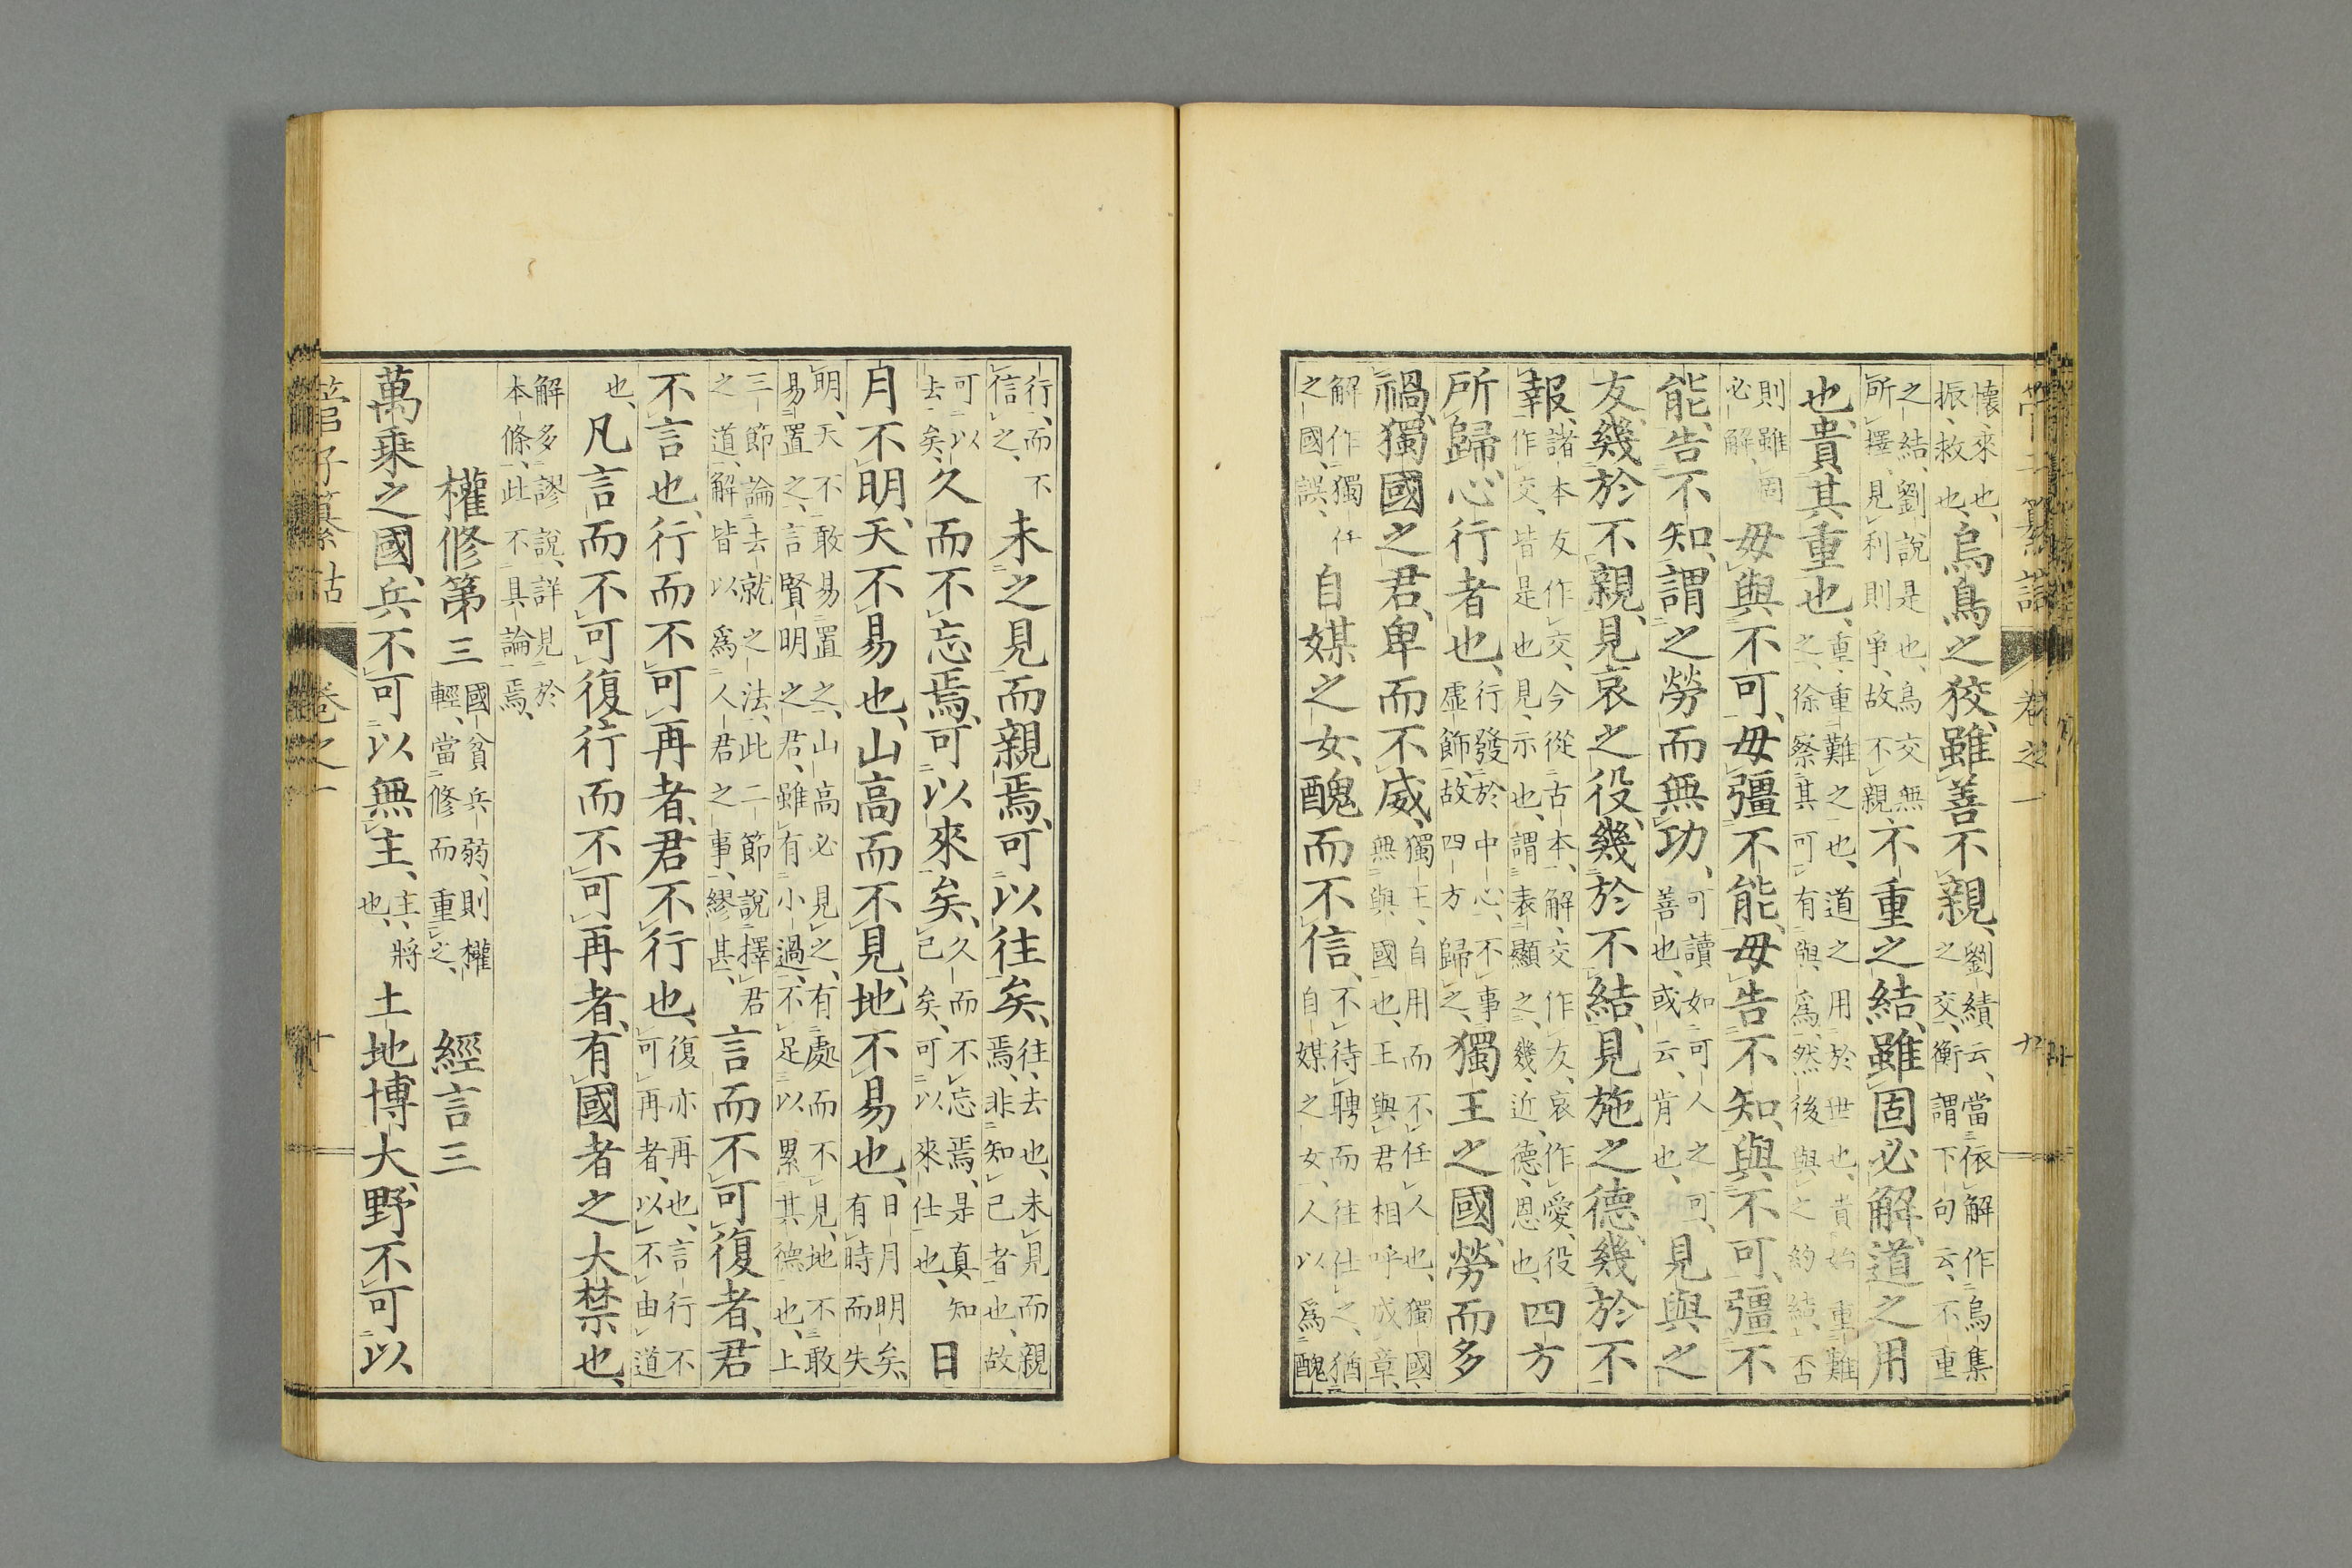 管子纂詁 卷之一 九
懷、來也、
振、救也、
烏鳥之狡、雖善不親、
劉績云、當依解作烏集
之交、衡謂下句云、不重
之結、劉說是也、烏交無
所擇、見利則爭、故不親、
不重之結、雖固必解、道之用
也、貴其重也、
重、重難之也、道之用於世也、貴始重難
之、徐察其可有與爲、然後與之約結、否
則雖固
必解、
毋與不可、毋彊不能、毋告不知、與不可、彊不
能、告不知、謂之勞而無功、
可讀如可人之可、
善也、或云、肯也、
見與之
友、幾於不親、見哀之役、幾於不結、見施之德、幾於不
報、
諸本友作交、今從古本、解交作友、哀作愛、役
作交、皆是也、見、示也、謂表顯之、幾、近、德、恩也、
四方
所歸、心行者也、
行發於中心、不事
虛飾、故四方歸之、
獨王之國、勞而多
禍、獨國之君、卑而不威、
獨王、自用而不任人也、獨國、
無與國也、王與君相呼成章、
解作獨任
之國、誤、
自媒之女、醜而不信、
不待聘而往仕之、猶
自媒之女、人以爲醜
行、而不
信之、
未之見而親焉、可以往矣、
往、去也、未見而親
焉、非知己者也、故
可以
去矣、
久而不忘焉、可以來矣、
久而不忘焉、是真知
己矣、可以來仕也、
日
月不明、天不易也、山高而不見、地不易也、
日月明矣、
有時而失
明、天不敢易置之、山高必見之、有處而不見、地不敢
易置之、言賢明之君、雖有小過、不足以累其德也、上
三節論去就之法、此二節說擇君
之道、解皆以爲人君之事、繆甚、
言而不可復者、君
不言也、行而不可再者、君不行也、
復亦再也、言行不
可再者、以不由道
也、
凡言而不可復、行而不可再者、有國者之大禁也、
解多謬說、詳見於
本條、此不具論焉、
權修第三
國貧兵弱、則權
輕、當修而重之、
經言三
萬乘之國、兵不可以無主、
主、將
也、
土地博大、野不可以
管子纂詁 卷之一 十